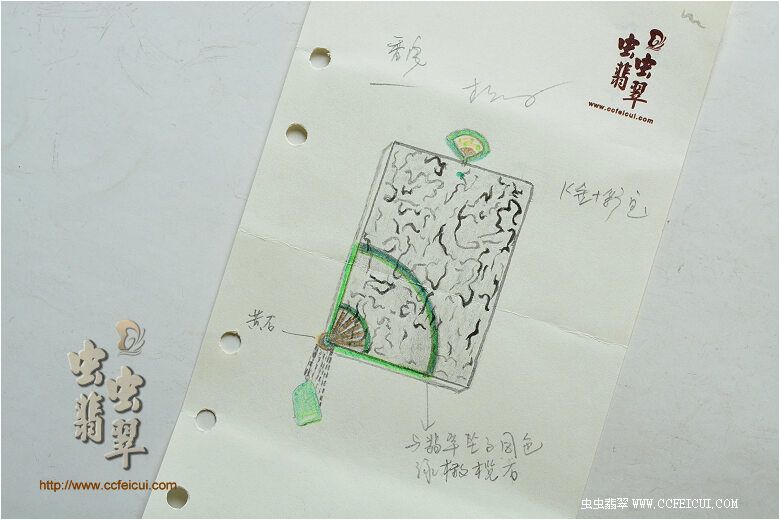 虫虫翡翠
www.ccfeicui.com
K金+彩色
黄石
与翡翠坠子同色
绿橄榄石
虫虫翡翠
http://www.ccfeicui.com
虫虫翡翠 WWW.CCFEICUI.COM